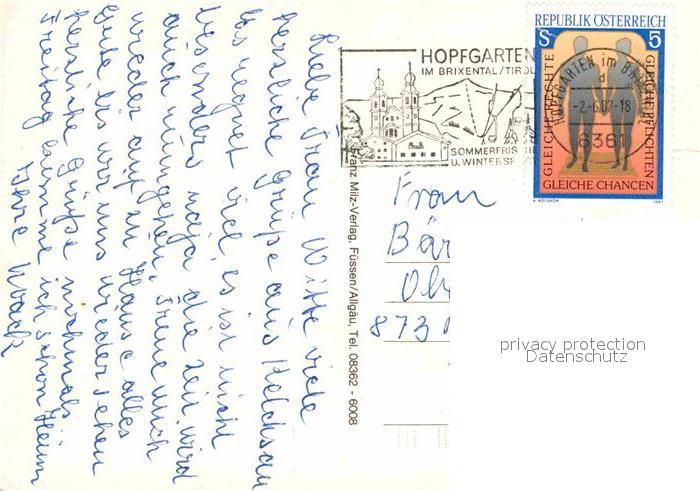 Liebe Frau Witte viele
herzliche Grüße aus Kelchsau
es regnet viel, es ist nicht
besonders naja die Zeit wird
auch rumgehen, freue mich
wieder auf zu Hause alles
Gute bis wir uns wiedersehen
herzliche Grüße nochmals
Freitag komme ich schon Heim
Ihre
HOPFGARTEN
IM BRIXENTAL/TIROL
SOMMERFRIS
U. WINTERSP
HOPFGARTEN im BR
d
-2.-6.87-18
6361
REPUBLIK ÖSTERREICH
S 5
GLEICHE RECHTE
GLEICHE PFLICHTEN
GLEICHE CHANCEN
1987
Franz Milz-Verlag, Füssen/Allgäu, Tel. 08362 - 6008
Frau
Bär
873
privacy protection
Datenschutz